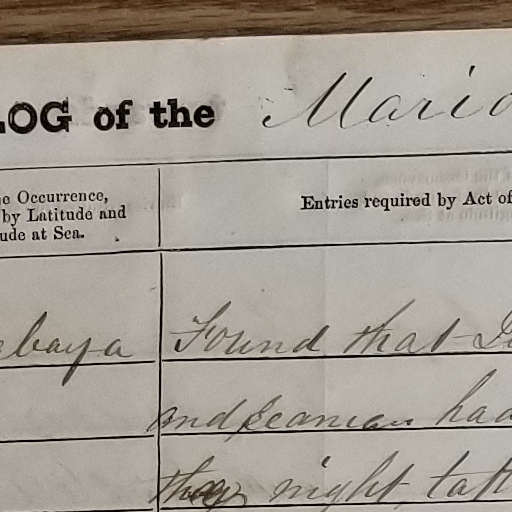 LOG of the Mario
e Occurrence,
by Latitude and
ude at Sea.
Entries required by Act of
abaya Found that
and Seaman had
night